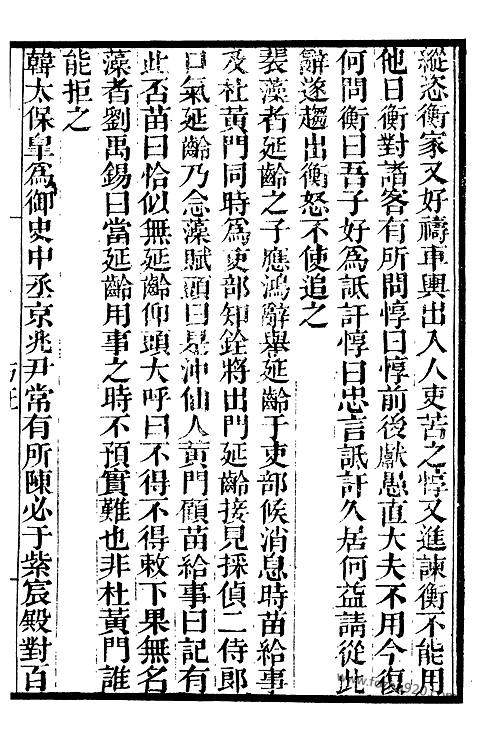 縱恣衡家又好禱車輿出入人吏苦之惇又進諫衡不能用
他日衡對諸客有所問惇曰惇前後獻愚直大夫不用今復
何問衡曰吾子好為詆訐惇曰忠言詆訐久居何益請從此
辭遂趨出衡怒不使追之
裴藻者延齡之子應鴻辭舉延齡于吏部候消息時苗給事
及杜黃門同時為吏部知銓將出門延齡接見採偵二侍郎
口氣延齡乃念藻賦頭曰是沖仙人黃門顧苗給事曰記有
此否苗曰恰似無延齡仰頭大呼曰不得不得敕下果無名
藻者劉禹錫曰當延齡用事之時不預實難也非杜黃門誰
能拒之
韓太保皐為御史中丞京兆尹常有所陳必于紫宸殿對百